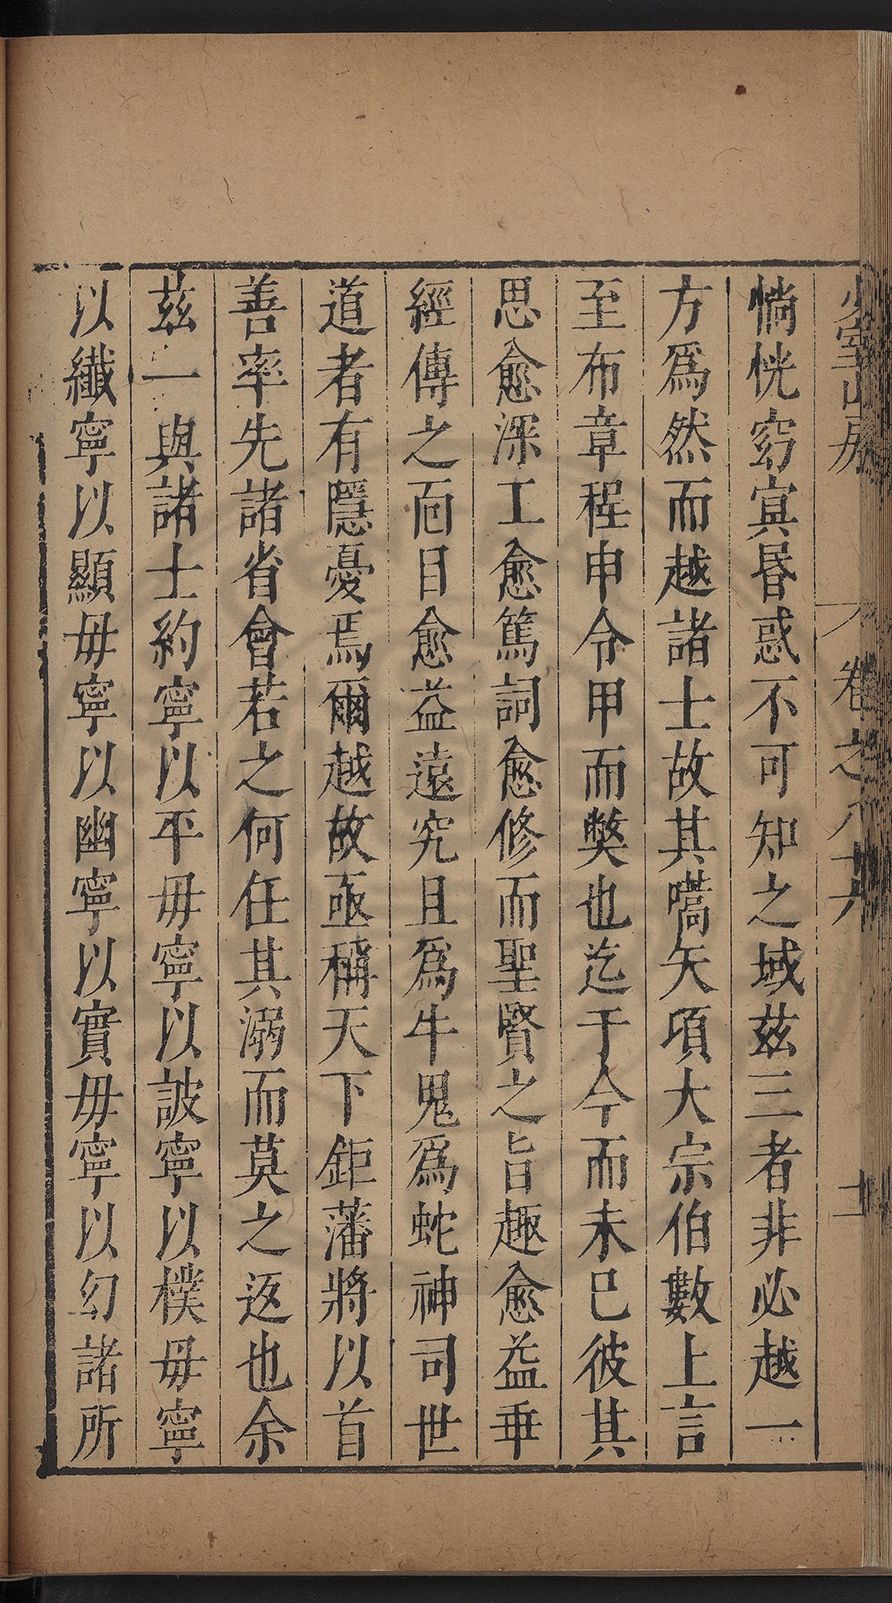 少室山房
卷之八十六
十一
惝恍窈冥昏惑不可知之域茲三者非必越一
方爲然而越諸士故其嚆矢項大宗伯數上言
至布章程申令甲而獘也迄于今而未巳彼其
思愈深工愈篤詞愈修而聖賢之旨趣愈益乖
經傳之面目愈益遠究且爲牛鬼爲蛇神司世
道者有隱憂焉爾越故亟稱天下鉅藩將以首
善率先諸省會若之何任其溺而莫之返也余
茲一與諸士約寧以平毋寧以詖寧以樸毋寧
以纖寧以顯毋寧以幽寧以實毋寧以幻諸所